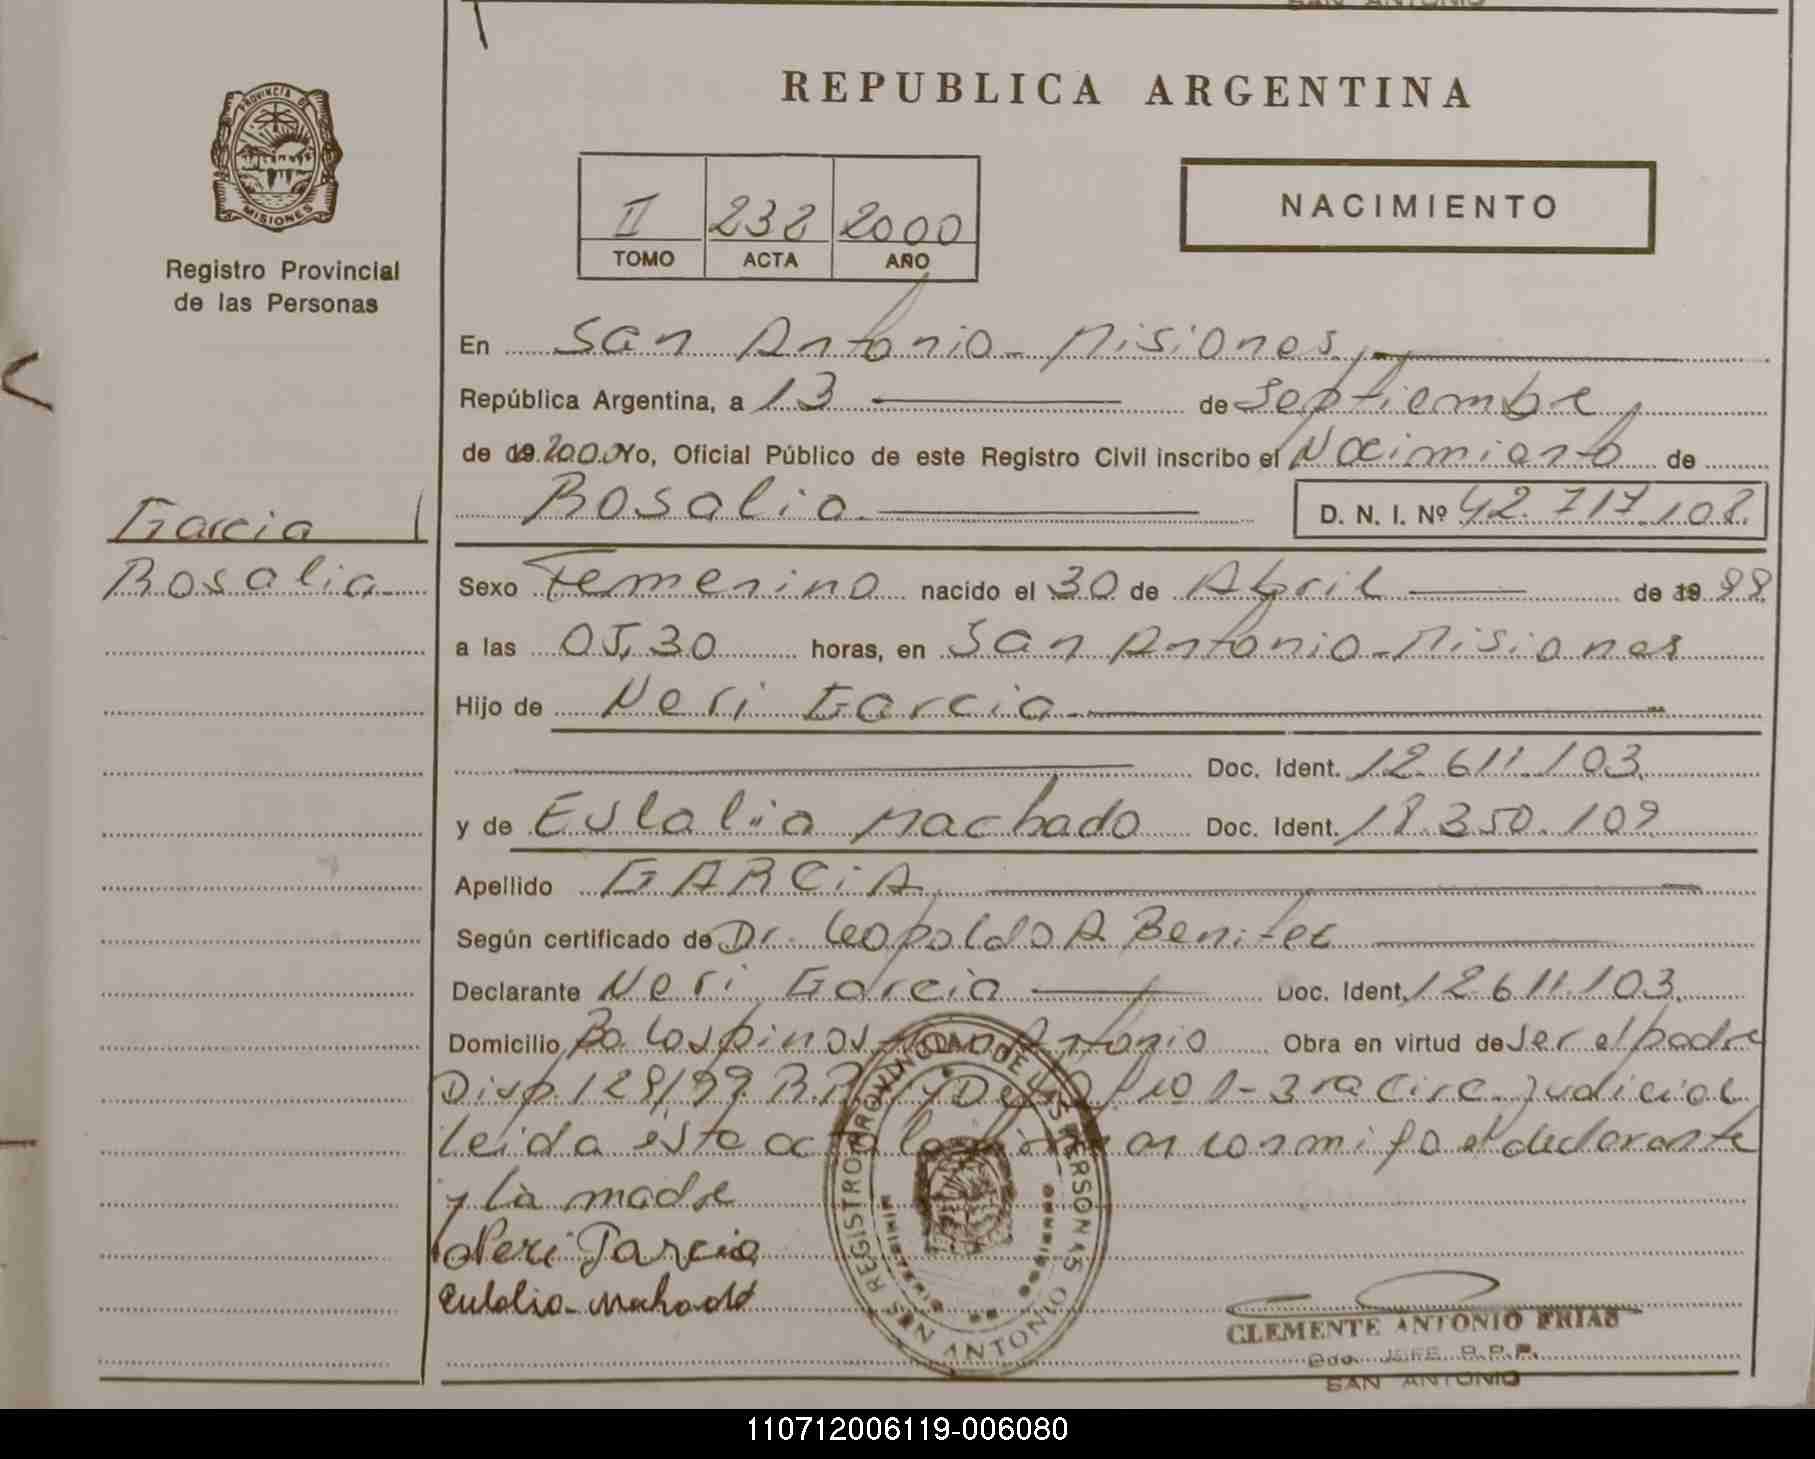 SAN ANTONIO
PROVINCIA DE
MISIONES
Registro Provincial
de las Personas
Garcia
Rosalia
REPUBLICA ARGENTINA
II 232 2000
TOMO ACTA AÑO
NACIMIENTO
En San Antonio - Misiones,
República Argentina, a 13 de Septiembre
de 19 2000 Yo, Oficial Público de este Registro Civil inscribo el Nacimiento de
Rosalia D. N. I. Nº 42.717.108.
Sexo Femenino nacido el 30 de Abril de 19 99
a las 05,30 horas, en San Antonio - Misiones
Hijo de Neri Garcia
Doc. Ident. 12.611.103.
y de Eulalia Machado Doc. Ident. 18.350.109
Apellido GARCIA
Según certificado de Dr. Leopoldo A Benitez
Declarante Neri Garcia Doc. Ident. 12611.103.
Domicilio Bo. Los pinos San Antonio Obra en virtud de ser el padre
Disp. 128/99 3ra Circ. Judicial
Leida esta acta la firman conmigo el declarante
y la madre
Neri Garcia
Eulalia Machado
REGISTRO PROVINCIAL DE LAS PERSONAS
MINISTERIO DE GOBIERNO
SAN ANTONIO
CLEMENTE ANTONIO FRIAS
JEFE R.P.P.
SAN ANTONIO
110712006119-006080